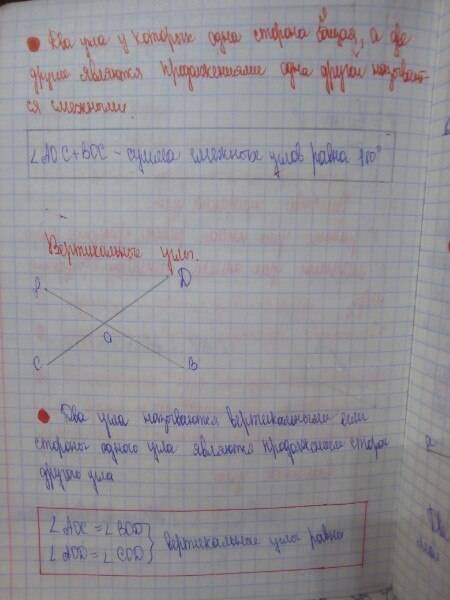 Два угла у которых одна сторона общая, а две
другие являются продолжениями одна другой называет-
ся смежными.
∠AOC+BOC - сумма смежных углов равна 180°
Вертикальные углы.
A D
O
C B
Два угла называются вертикальными если
стороны одного угла являются продолжением сторон
другого угла
∠AOC = ∠BOD
∠AOD = ∠COD } вертикальные углы равны